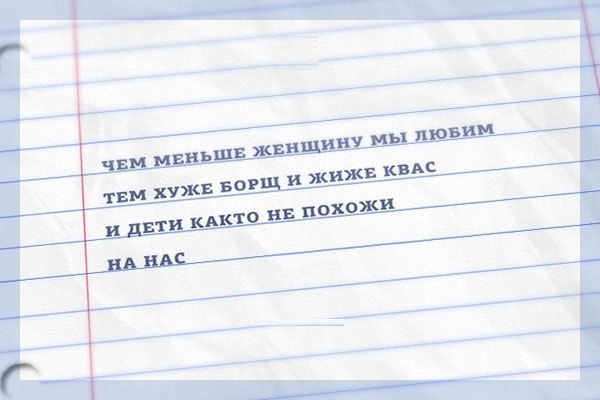 ЧЕМ МЕНЬШЕ ЖЕНЩИНУ МЫ ЛЮБИМ
ТЕМ ХУЖЕ БОРЩ И ЖИЖЕ КВАС
И ДЕТИ КАКТО НЕ ПОХОЖИ
НА НАС